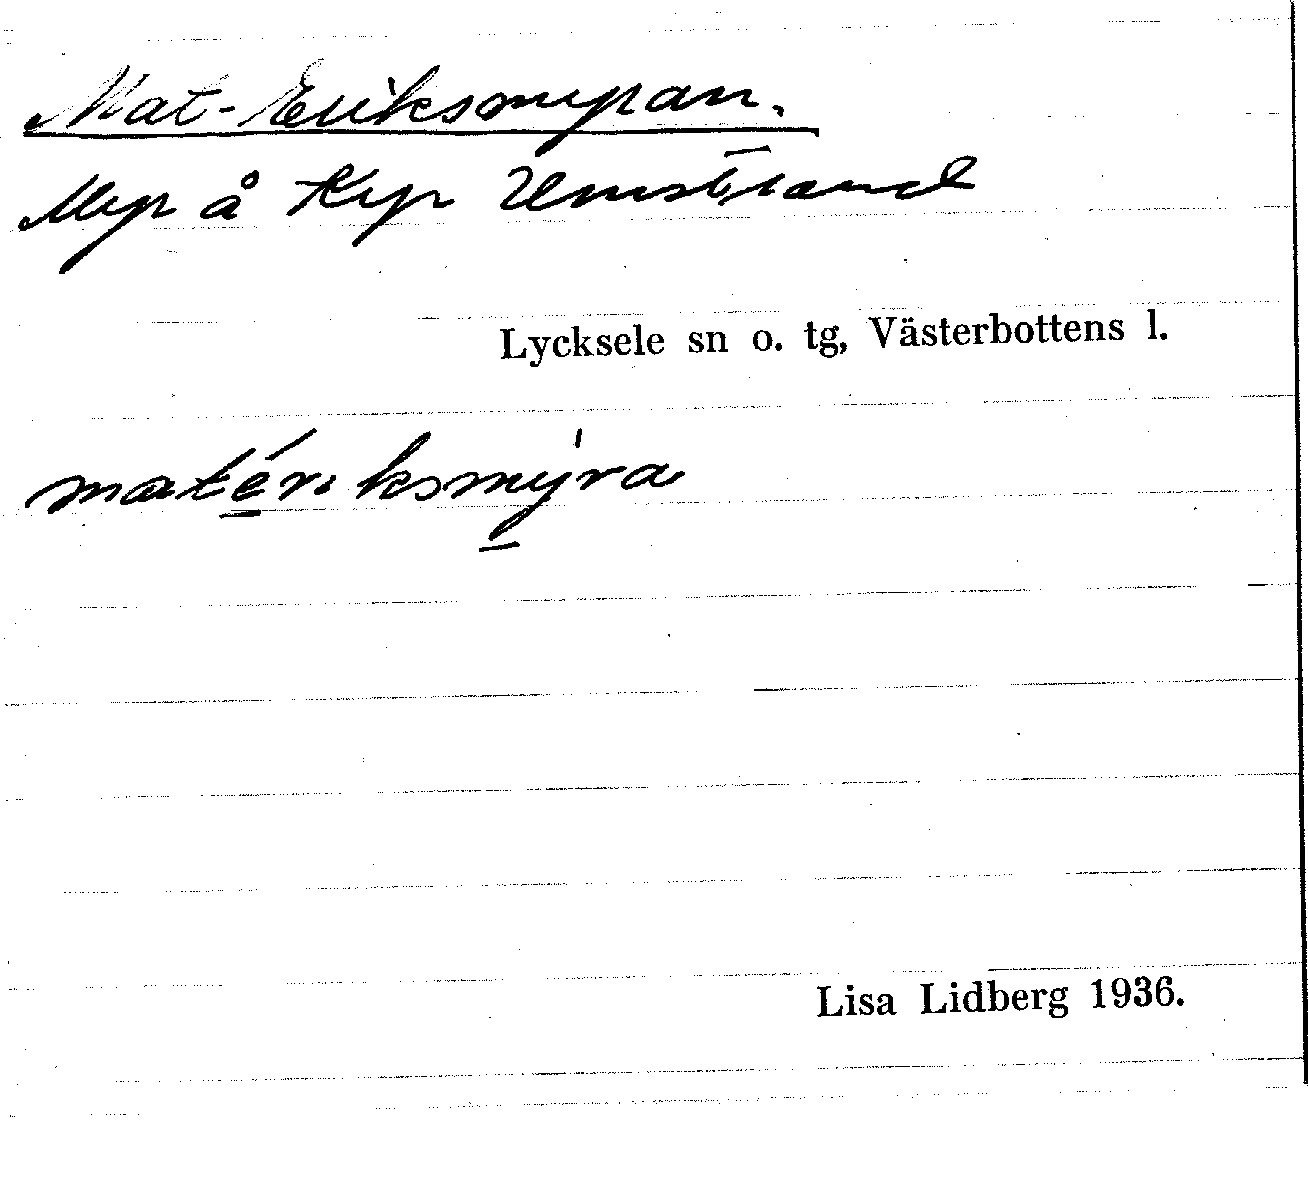 Mat-Eriksmyran.
Myr å Krp Umstrand
Lycksele sn o. tg, Västerbottens l.
matériksmýra
Lisa Lidberg 1936.